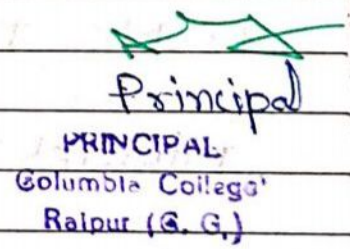 Principal
PRINCIPAL
Columbia College
Raipur (C. G.)